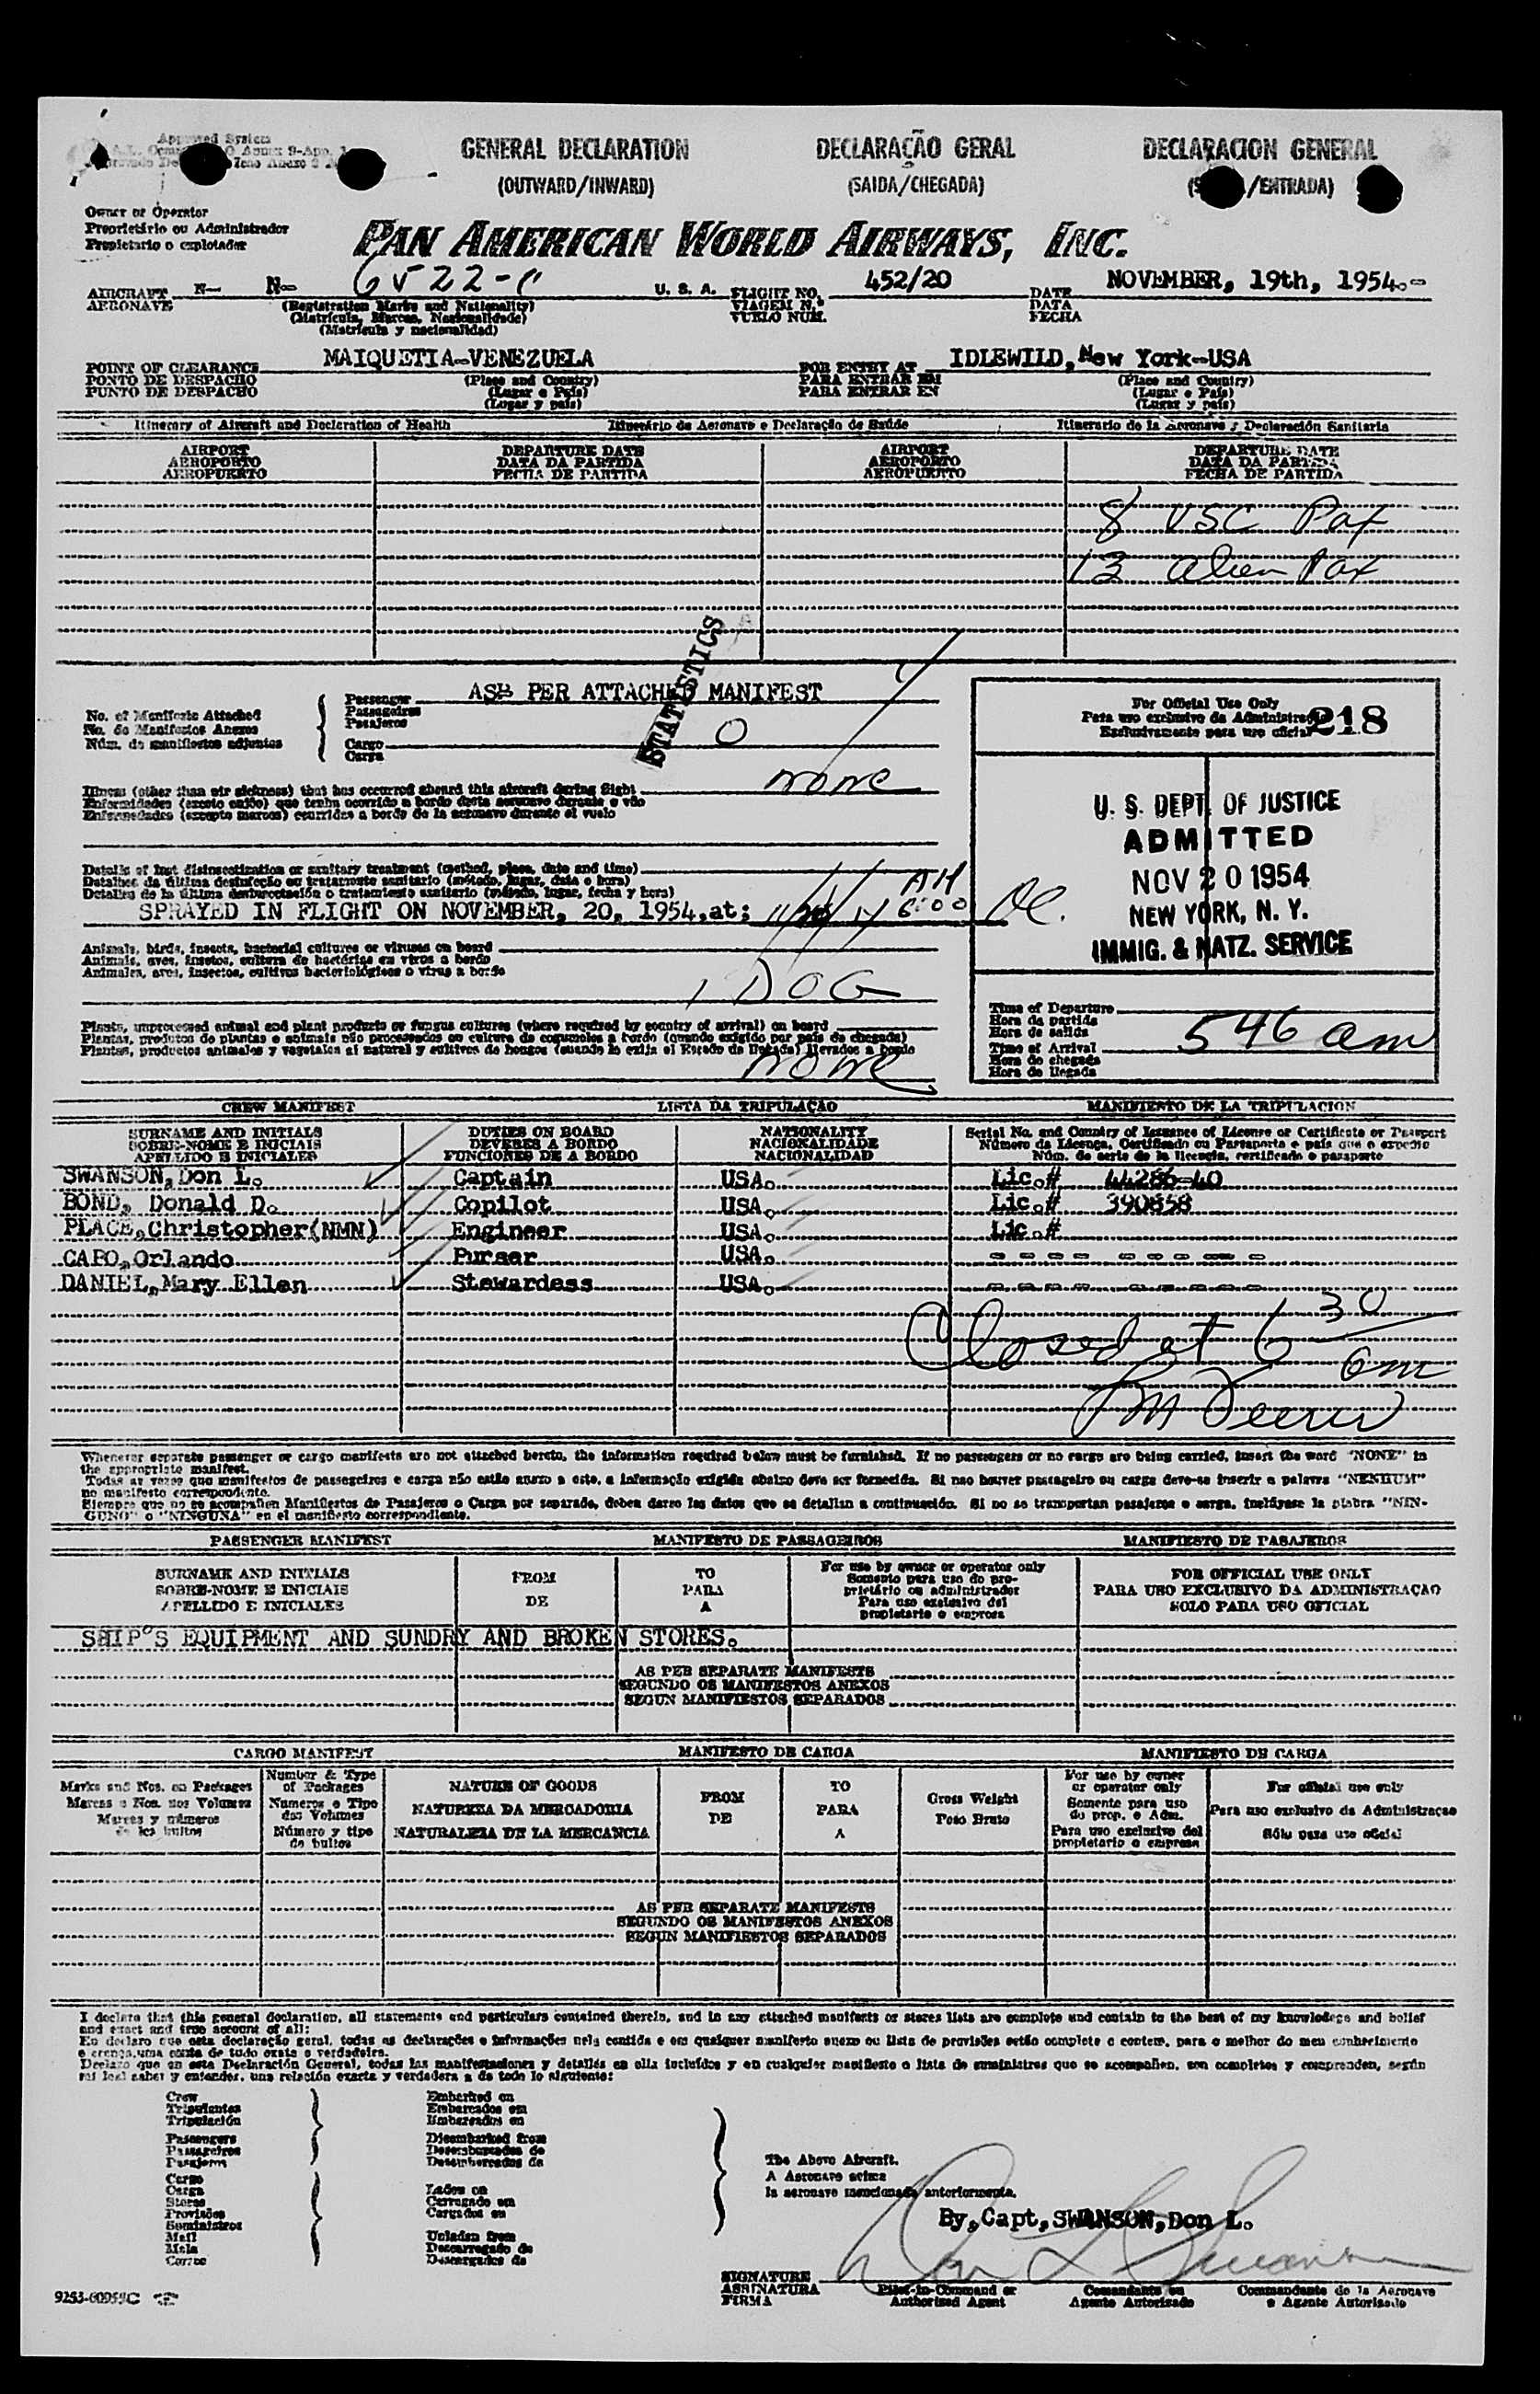 Approved System
GENERAL DECLARATION DECLARAÇÃO GERAL DECLARACION GENERAL
(OUTWARD/INWARD) (SAIDA/CHEGADA) /ENTRADA)
Owner or Operator
Proprietário ou Administrador
Propietario o explotador
PAN AMERICAN WORLD AIRWAYS, INC.
AIRCRAFT N- N- 6522-C U. S. A. FLIGHT NO. 452/20 DATE NOVEMBER, 19th, 1954.-
AERONAVE (Registration Marks and Nationality) VIAGEM N.º DATA
(Matrícula, Marcas, Nacionalidade) VUELO NUM. FECHA
(Matrícula y nacionalidad)
POINT OF CLEARANCE MAIQUETIA-VENEZUELA FOR ENTRY AT IDLEWILD, New York-USA
PONTO DE DESPACHO (Place and Country) PARA ENTRAR EM (Place and Country)
PUNTO DE DESPACHO (Lugar e País) PARA ENTRAR EN (Lugar e País)
(Lugar y país) (Lugar y país)
Itinerary of Aircraft and Declaration of Health Itinerário da Aeronave e Declaração de Saúde Itinerario de la Aeronave y Declaración Sanitaria
AIRPORT DEPARTURE DATE AIRPORT DEPARTURE DATE
AEROPORTO DATA DA PARTIDA AEROPORTO DATA DA PARTIDA
AEROPUERTO FECHA DE PARTIDA AEROPUERTO FECHA DE PARTIDA
8 USC Pax
13 alien Pax
STATISTICS
No. of Manifests Attached
No. de Manifestos Anexos
Núm. de manifiestos adjuntos
Passenger ASB PER ATTACHED MANIFEST
Passageiros
Pasajeros
Cargo O
Carga
For Official Use Only
Para uso exclusivo da Administração
Exclusivamente para uso oficial 218
Illness (other than air sickness) that has occurred aboard this aircraft during flight none
Enfermidades (exceto enjôo) que tenha ocorrido a bordo desta aeronave durante o vôo
Enfermedades (excepto mareos) ocurridas a bordo de la aeronave durante el vuelo
U. S. DEPT. OF JUSTICE
ADMITTED
NOV 20 1954
NEW YORK, N. Y.
IMMIG. & NATZ. SERVICE
Details of last disinsectization or sanitary treatment (method, place, date and time)
Detalhes da última desinfeção ou tratamento sanitário (método, lugar, data e hora)
Detalles de la última desinsectación o tratamiento sanitario (método, lugar, fecha y hora)
SPRAYED IN FLIGHT ON NOVEMBER, 20, 1954, at: AM 6:00
Animals, birds, insects, bacterial cultures or viruses on board
Animais, aves, insetos, cultura de bactérias ou virus a bordo
Animales, aves, insectos, cultivos bacteriológicos o virus a bordo
1 DOG
Plants, unprocessed animal and plant products or fungus cultures (where required by country of arrival) on board
Plantas, produtos de plantas e animais não processados ou cultura de cogumelos a bordo (quando exigido por país de chegada)
Plantas, productos animales y vegetales al natural y cultivos de hongos (cuando lo exija el Estado de llegada) llevados a bordo
none
Time of Departure
Hora da partida
Hora de salida
Time of Arrival 546 am
Hora do chegada
Hora de llegada
CREW MANIFEST LISTA DA TRIPULAÇÃO MANIFIESTO DE LA TRIPULACION
SURNAME AND INITIALS DUTIES ON BOARD NATIONALITY Serial No. and Country of Issuance of License or Certificate or Passport
SOBRE-NOME E INICIAIS DEVERES A BORDO NACIONALIDADE Número da Licença, Certificado ou Passaporte e país que o expediu
APELLIDO E INICIALES FUNCIONES DE A BORDO NACIONALIDAD Núm. de serie de la licencia, certificado o pasaporte
SWANSON, Don L. Captain USA. Lic.# 44286-40
BOND, Donald D. Copilot USA. Lic.# 390858
PLACE, Christopher(NMN) Engineer USA. Lic.#
CAPO, Orlando Purser USA. ---- ------
DANIEL, Mary Ellen Stewardess USA. ---- ------
Closed at 6 30
am
Whenever separate passenger or cargo manifests are not attached hereto, the information required below must be furnished. If no passengers or no cargo are being carried, insert the word "NONE" in
the appropriate manifest.
Todas as vezes que manifestos de passageiros e carga não estão anexo a este, a informação exigida abaixo deve ser fornecida. Si nao houver passageiro ou carga deve-se inserir a palavra "NENHUM"
no manifesto correspondente.
Siempre que no se acompañen Manifiestos de Pasajeros o Carga por separado, deben darse los datos que se detallan a continuación. Si no se transportan pasajeros o carga, inclúyase la plabra "NIN-
GUNO" o "NINGUNA" en el manifiesto correspondiente.
PASSENGER MANIFEST MANIFESTO DE PASSAGEIROS MANIFIESTO DE PASAJEROS
SURNAME AND INITIALS FROM TO For use by owner or operator only FOR OFFICIAL USE ONLY
SOBRE-NOME E INICIAIS DE PARA Somente para uso do proprietário ou administrador PARA USO EXCLUSIVO DA ADMINISTRAÇÃO
APELLIDO E INICIALES A Para uso exclusivo del propietario o empresa SOLO PARA USO OFICIAL
SHIP'S EQUIPMENT AND SUNDRY AND BROKEN STORES.
AS PER SEPARATE MANIFESTS
SEGUNDO OS MANIFESTOS ANEXOS
SEGUN MANIFIESTOS SEPARADOS
CARGO MANIFEST MANIFESTO DE CARGA MANIFIESTO DE CARGA
Marks and Nos. on Packages Number & Type of Packages NATURE OF GOODS FROM TO Gross Weight For use by owner or operator only For official use only
Marcas e Nos. dos Volumes Numeros e Tipo dos Volumes NATUREZA DA MERCADORIA DE PARA Peso Bruto Somente para uso do prop. e Adm. Para uso exclusivo da Administraçao
Marcas y números de los bultos Número y tipo de bultos NATURALEZA DE LA MERCANCIA A Para uso exclusivo del propietario o empresa Sólo para uso oficial
AS PER SEPARATE MANIFESTS
SEGUNDO OS MANIFESTOS ANEXOS
SEGUN MANIFIESTOS SEPARADOS
I declare that this general declaration, all statements and particulars contained therein, and in any attached manifests or stores lists are complete and contain to the best of my knowledge and belief
and exact and true account of all:
Eu declaro que esta declaração geral, todas as declarações e informações nela contida e em qualquer manifesto anexo ou lista de provisões estão completo e contem, para o melhor do meu conhecimento
e crença, uma conta de todo exata e verdadeira.
Declaro que en esta Declaración General, todas las manifestaciones y detalles en ella incluídos y en cualquier manifiesto o lista de suministros que se acompañen, son completos y comprenden, según
mi leal saber y entender, una relación exacta y verdadera a de todo lo siguiente:
Crew Embarked on
Tripulantes Embarcados em
Tripulación Embarcados en
Passengers Disembarked from
Passageiros Desembarcados de
Pasajeros Desembarcados de
Cargo
Carga Laden on
Stores Carregado em
Provisões Cargados en
Suministros
Mail Unladen from
Mala Descarregado de
Correo Descargados de
The Above Aircraft.
A Aeronave acima
la aeronave mencionada anteriormente.
By, Capt, SWANSON, Don L.
Don L Swanson
SIGNATURE Pilot-in-Command or Comandante ou Commandante de la Aeronave
ASSINATURA Authorized Agent Agente Autorizado o Agente Autorizado
FIRMA